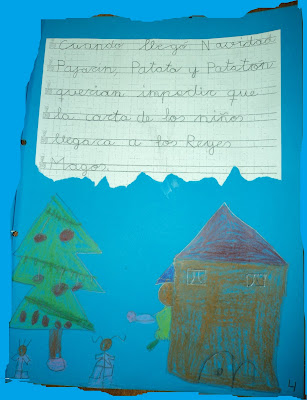 Cuando llegó Navidad
Pajarin, Patata y Patatón
querian impedir que
la carta de los niños
llegara a los Reyes
Magos
4